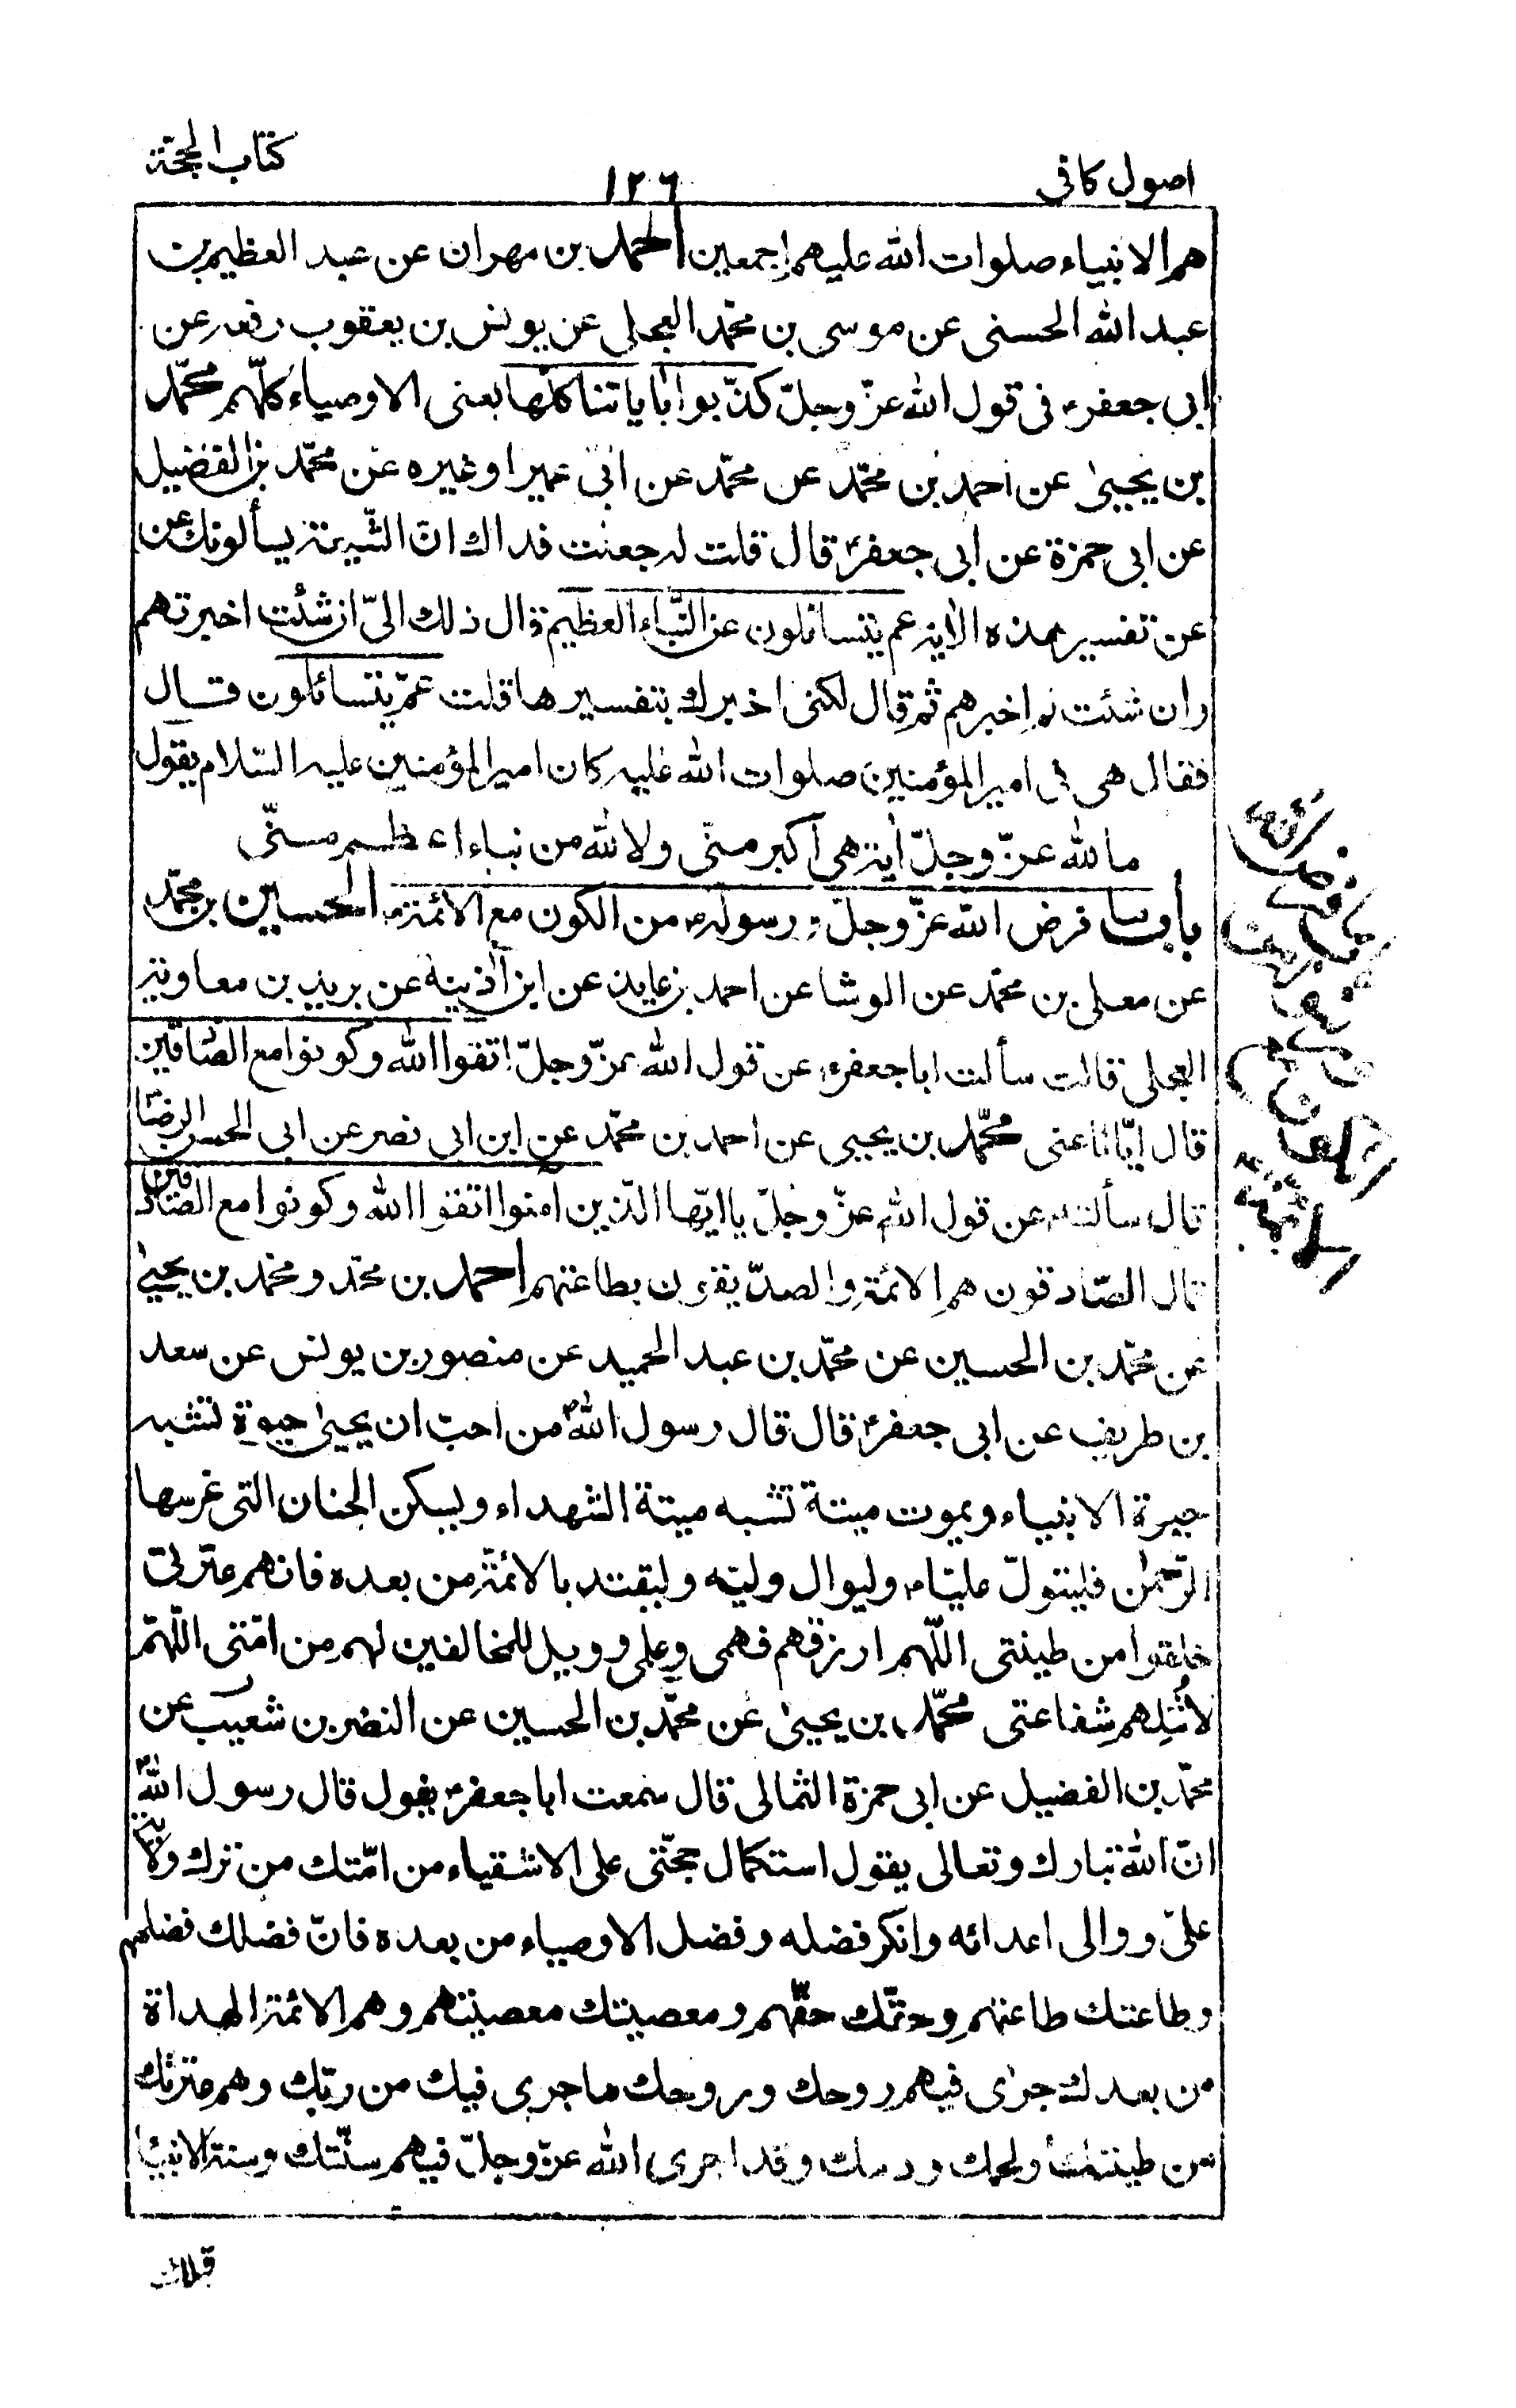 كتاب الحجة
اصول كافى
١٢٦
هم الانبياء صلوات الله عليهم اجمعين احمد بن مهران عن عبد العظيم بن
عبد الله الحسنى عن موسى بن محمّد العجلى عن يونس بن يعقوب رفعه عن
ابى جعفرء فى قول الله عزّ وجلّ كذّبوا بآياتنا كلّها يعنى الاوصياء كلّهم محمّد
بن يحيىٰ عن احمد بن محمّد عن محمّد عن ابى عمير او غيره عن محمّد بن الفضيل
عن ابى حمزة عن ابى جعفرء قال قلت له جعلت فداك انّ الشّيعة يسألونك عن
عن تفسير هذه الاية عم يتسائلون عن النّباء العظيم قال ذلك الىّ ان شئت اخبرتهم
وان شئت لم اخبرهم ثم قال لكنى اخبرك بتفسيرها قلت عمّ يتسائلون قال
فقال هى فى امير المؤمنين صلوات الله عليه كان امير المؤمنين عليه السّلام يقول
ما لله عزّ وجلّ اية هى اكبر منّى ولا لله من نباء اعظم منّى
باب ما فرض الله عزّ وجلّ و رسولهء من الكون مع الائمةء الحسين بن محمّد
عن معلى بن محمّد عن الوشا عن احمد بن عايذ عن ابن اذينة عن بريد بن معاوية
العجلى قالت سألت ابا جعفرء عن قول الله عزّ وجلّ اتقوا الله وكونوا مع الصّادقين
قال ايّانا عنى محمّد بن يحيى عن احمد بن محمّد عن ابن ابى نصر عن ابى الحسن الرضاء
قال سألتهء عن قول الله عزّ وجلّ يا ايّها الّذين آمنوا اتقوا الله وكونوا مع الصّادقين
قال الصّادقون هم الائمّة والصدّيقون بطاعتهم احمد بن محمّد و محمّد بن يحيىٰ
عن محمّد بن الحسين عن محمّد بن عبد الحميد عن منصور بن يونس عن سعد
بن طريف عن ابى جعفرء قال قال رسول اللهص من احبّ ان يحيىٰ حيوة تشبه
حيوة الانبياء ويموت ميتة تشبه ميتة الشهداء ويسكن الجنان التى غرسها
الرّحمٰن فليتولّ عليّاء وليوال وليّه وليقتد بالائمّة من بعده فانهم عترتى
خلقوا من طينتى اللّهم ارزقهم فهمى وعلمى وويل للمخالفين لهم من امّتى اللّهمّ
لا تنلهم شفاعتى محمّد بن يحيىٰ عن محمّد بن الحسين عن النضر بن شعيب عن
محمّد بن الفضيل عن ابى حمزة الثمالى قال سمعت ابا جعفرء يقول قال رسول اللهص
انّ الله تبارك وتعالى يقول استكمال حجّتى على الاشقياء من امّتك من ترك ولاية
علىّ ووالى اعدائه وانكر فضله وفضل الاوصياء من بعده فانّ فضلك فضلهم
وطاعتك طاعتهم وحقّك حقّهم ومعصيتك معصيتهم وهم الائمّة الهداة
من بعدك جرىٰ فيهم روحك وروحك ما جرى فيك من ربّك وهم عترتك
من طينتك ولحمك ودمك وقد اجرى الله عزّ وجلّ فيهم سنّتك وسنة الانبياء
قبلك
باب ما فرض الله
و رسوله من
الكون مع
الائمة